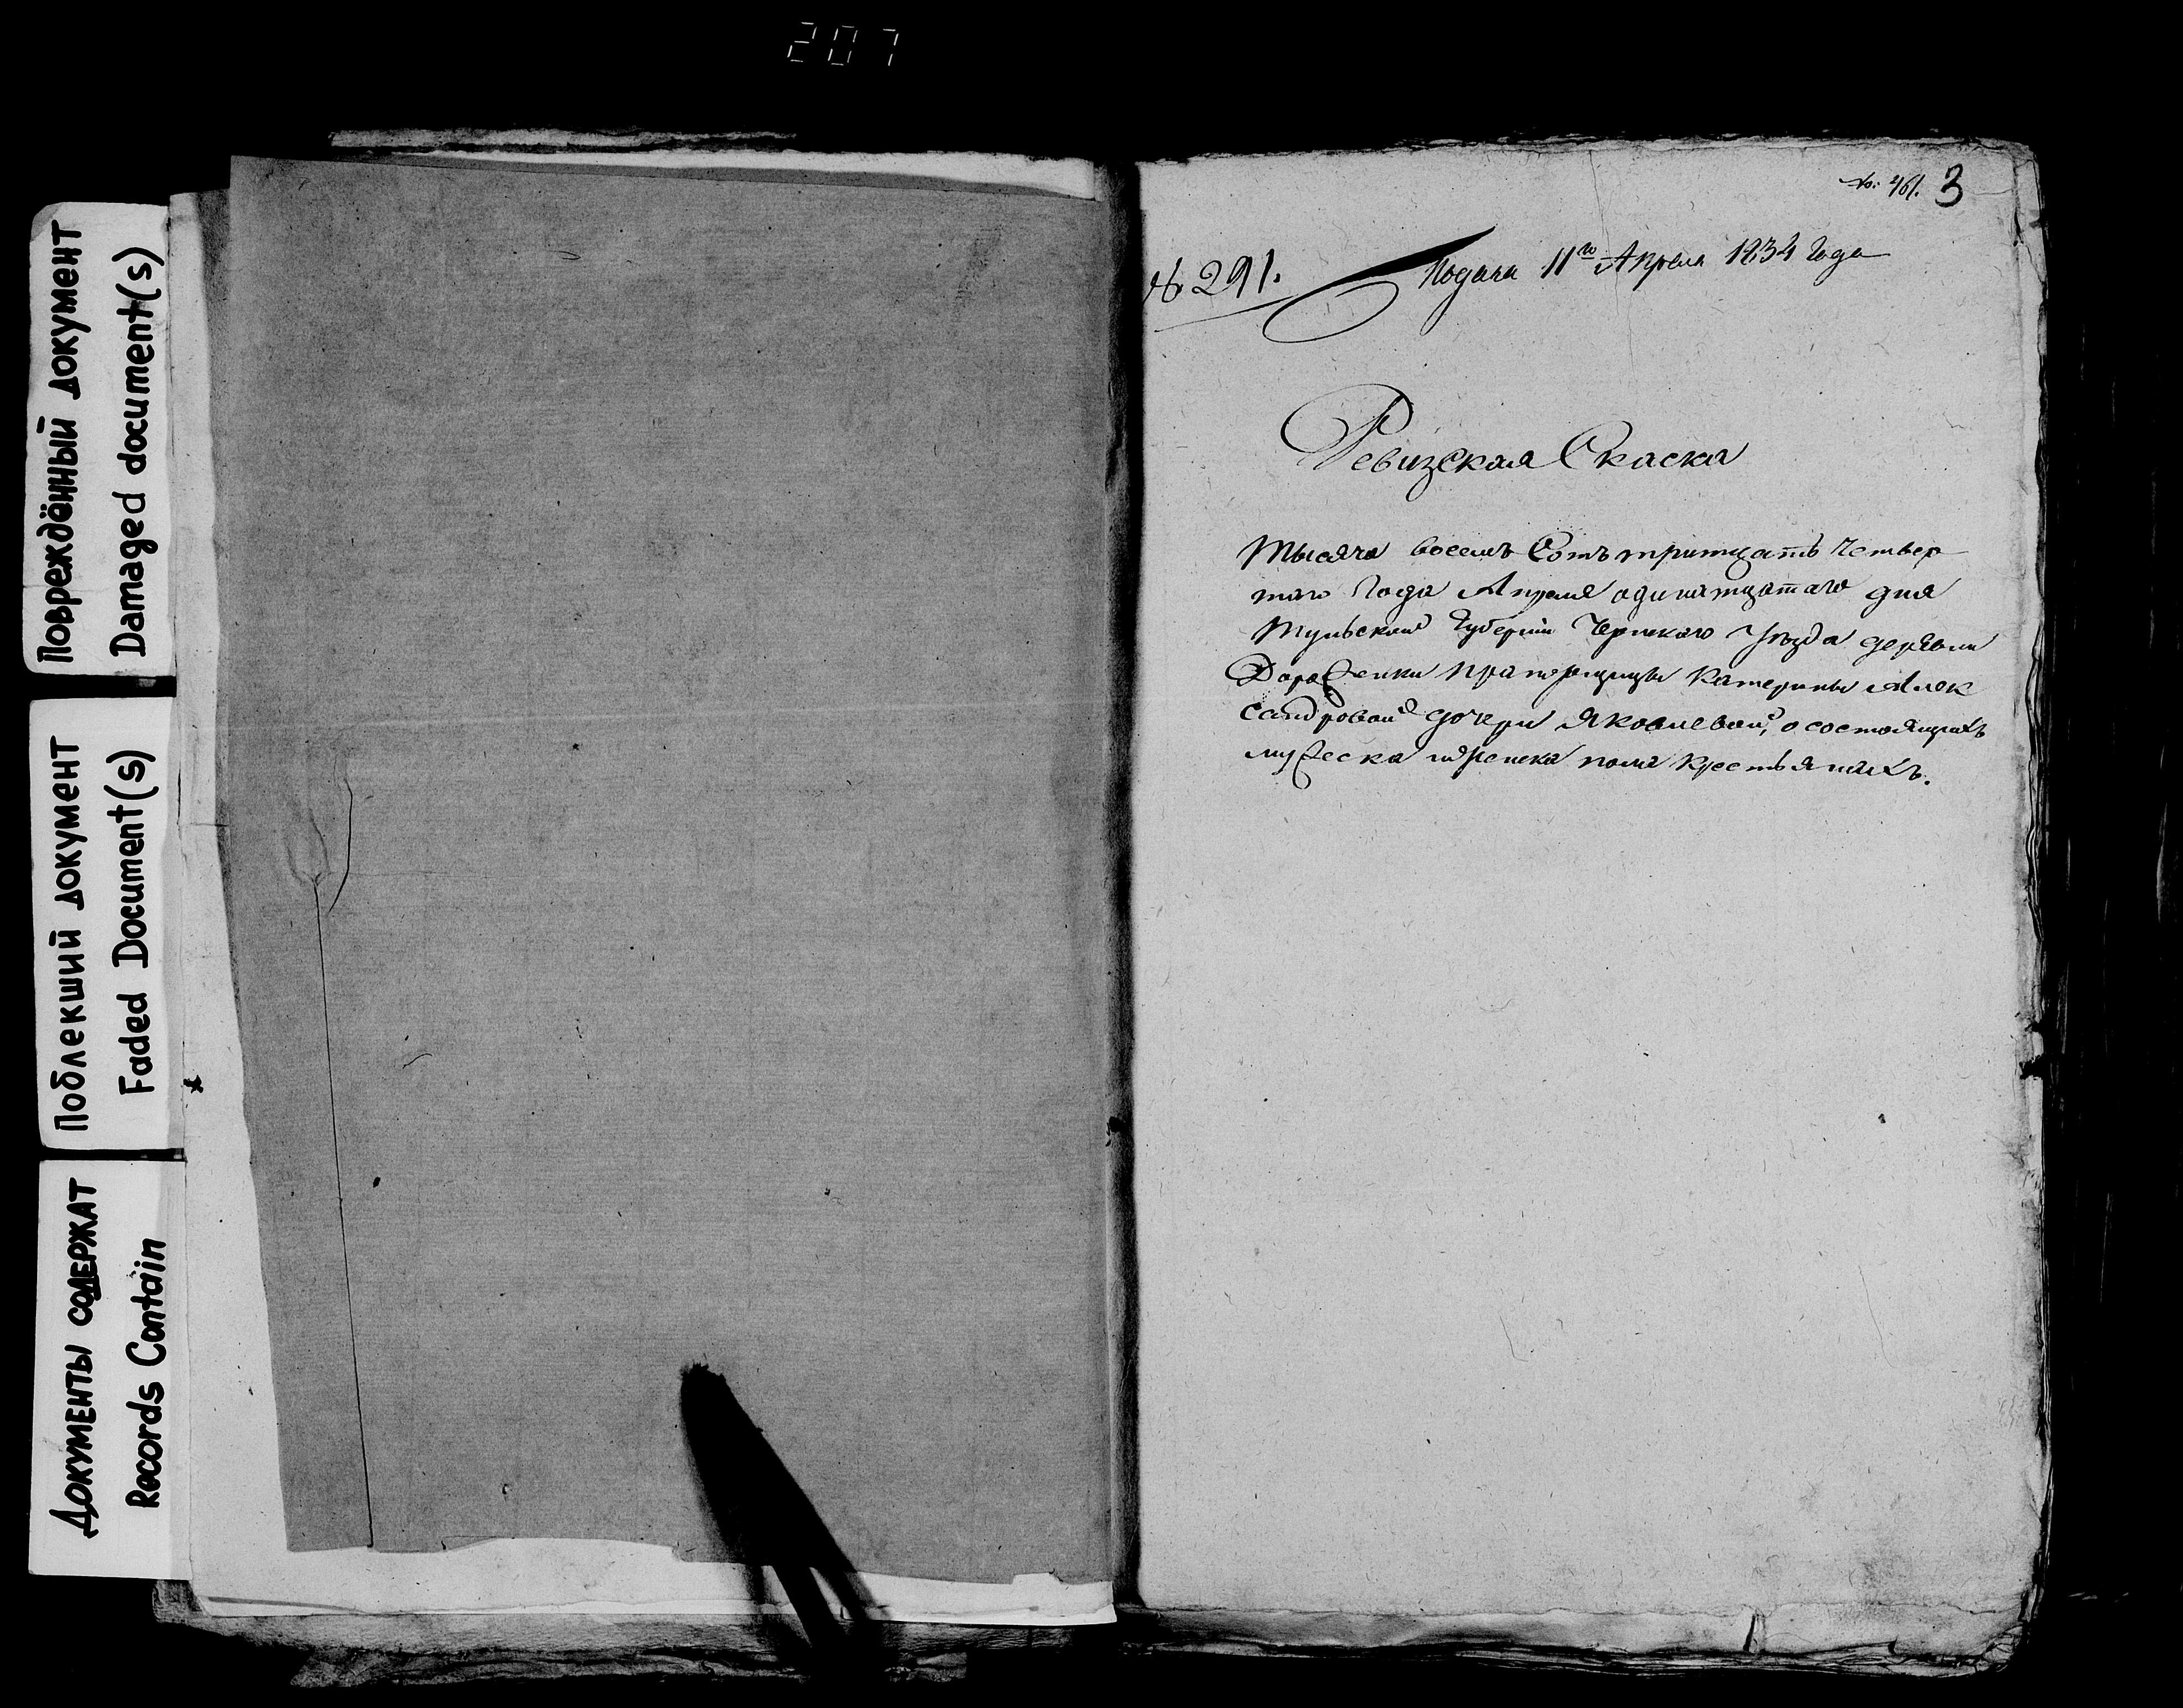 207
Повреждённый документ
Damaged document(s)
Поблекший документ
Faded Document(s)
Документы содержат
Records Contain
3
№ 291.
Подана 11го Апреля 1834 Года
Ревизская Скаска
Тысяча восемъ Сотъ тритцать четвер
таго Года Апреля одинатцатаго дня
Тульской Губернiи Чернскаго Уезда деревни
Дороженки Прапорщицы Катерины Алек
сандровой дочери Яковлевой, о состоящихъ
мужеска и женска пола крестьянахъ.